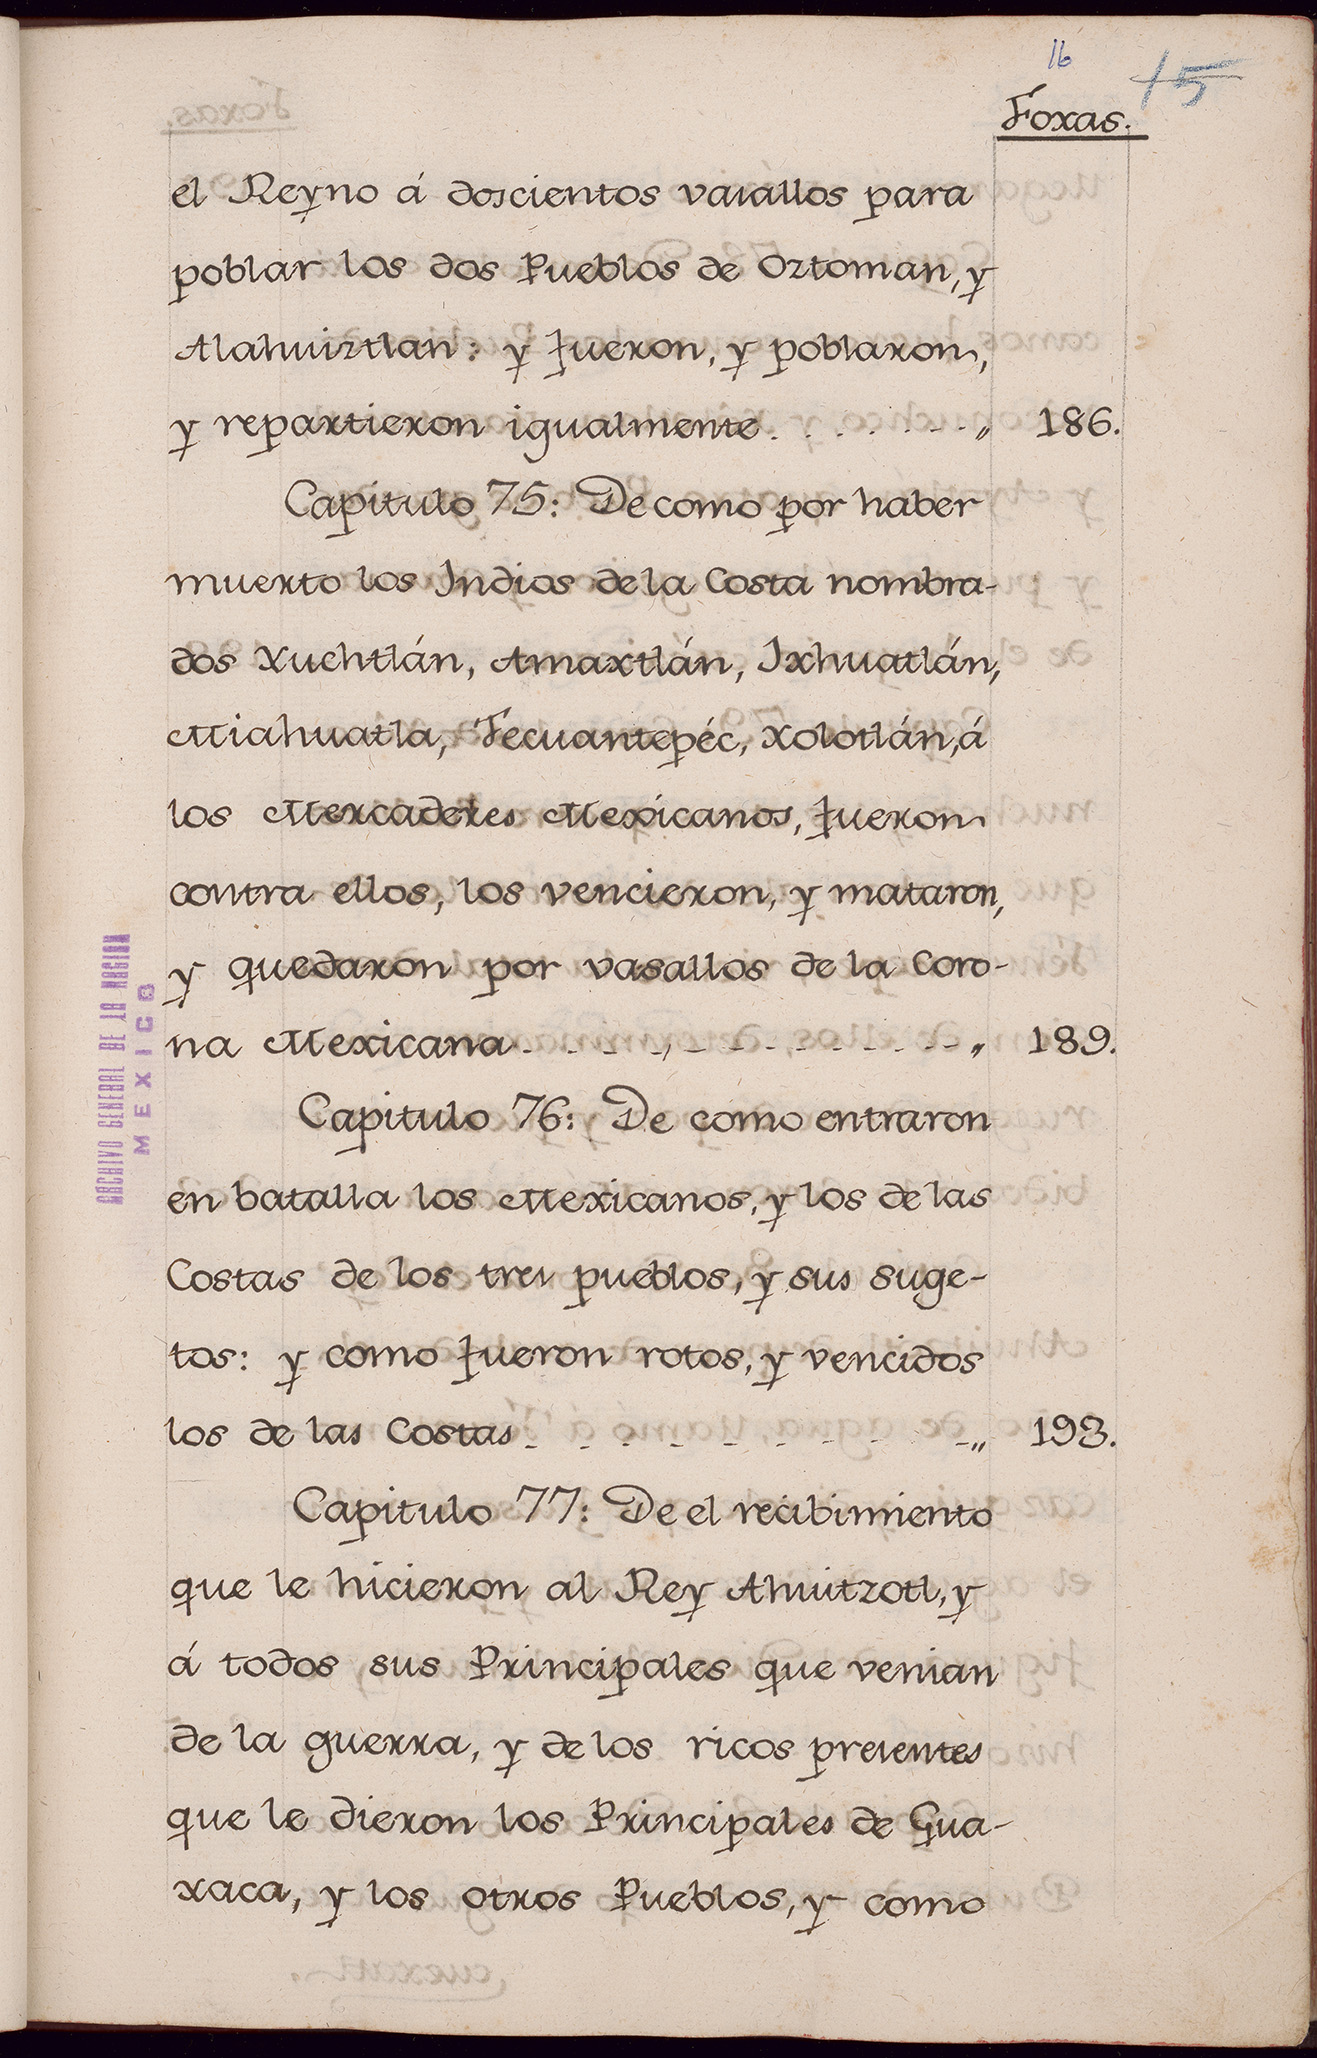 16
15
Foxas.
el Reyno á doscientos vasallos para
poblar los dos Pueblos de Oztoman, y
Alahuiztlan: y fueron, y poblaron,
y repartieron igualmente. . . . . . . „ 186.
Capitulo 75: De como por haber
muerto los Indios de la Costa nombra-
dos Xuchtlán, Amaxtlán, Ixhuatlán,
Miahuatla, Tecuantepéc, Xolotlán, á
los Mercaderes Mexicanos, fueron
contra ellos, los vencieron, y mataron,
y quedaron por vasallos de la Coro-
na Mexicana. . . . . . . . . . . „ 189.
Capitulo 76: De como entraron
en batalla los Mexicanos, y los de las
Costas de los tres pueblos, y sus suge-
tos: y como fueron rotos, y vencidos
los de las Costas. . . . . . . . . . „ 193.
Capitulo 77: De el recibimiento
que le hicieron al Rey Ahuitzotl, y
á todos sus Principales que venian
de la guerra, y de los ricos presentes
que le dieron los Principales de Gua-
xaca, y los otros Pueblos, y como
ARCHIVO GENERAL DE LA NACION
MEXICO